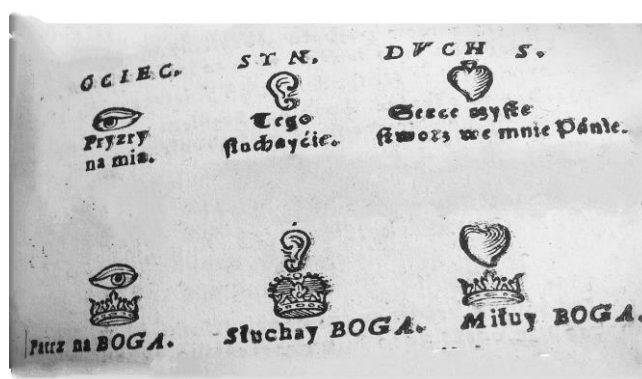 OCIEC. SYN. DVCH S.
Pryzry
na mia.
Tego
słuchayćie.
Serce czyste
stworz we mnie Pánie.
Patrz na BOGA. Słuchay BOGA. Miłuy BOGA.